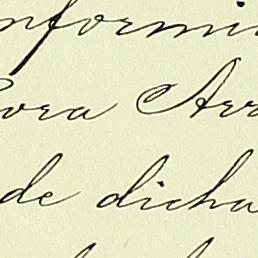 nformin
ora Arr
de dicha